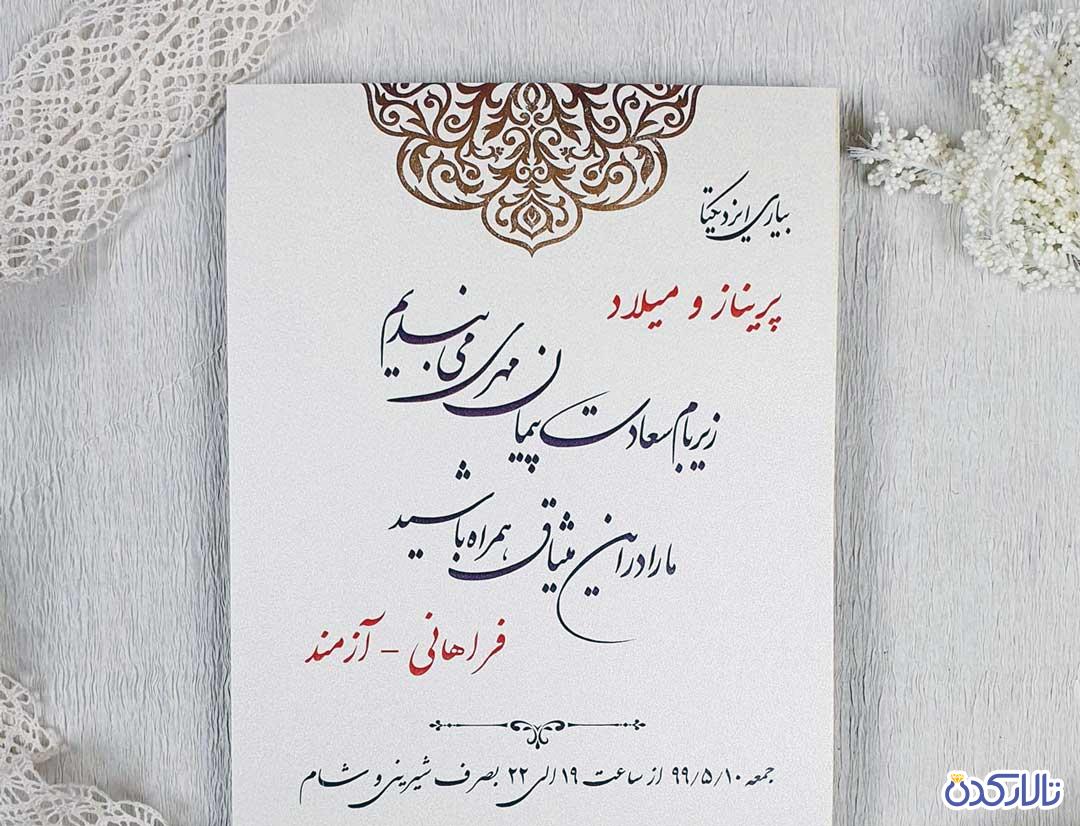 بیاری ایزد یکتا
پریناز و میلاد
زیر بام سعادت پیمان مهری می بندیم
ما را در این میثاق همراه باشید
فراهانی - آزمند
جمعه ۹۹/۵/۱۰ از ساعت ۱۹ الی ۲۲ بصرف شیرینی و شام
تالارکدن